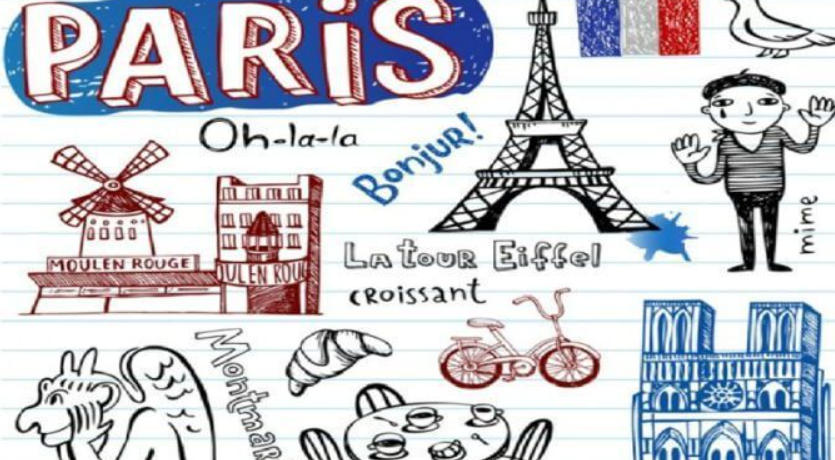 PARiS
Oh-la-la
Bonjur!
mime
MOULEN ROUGE
OULEN ROU
LA touR Eiffel
CRoissant
Montmar